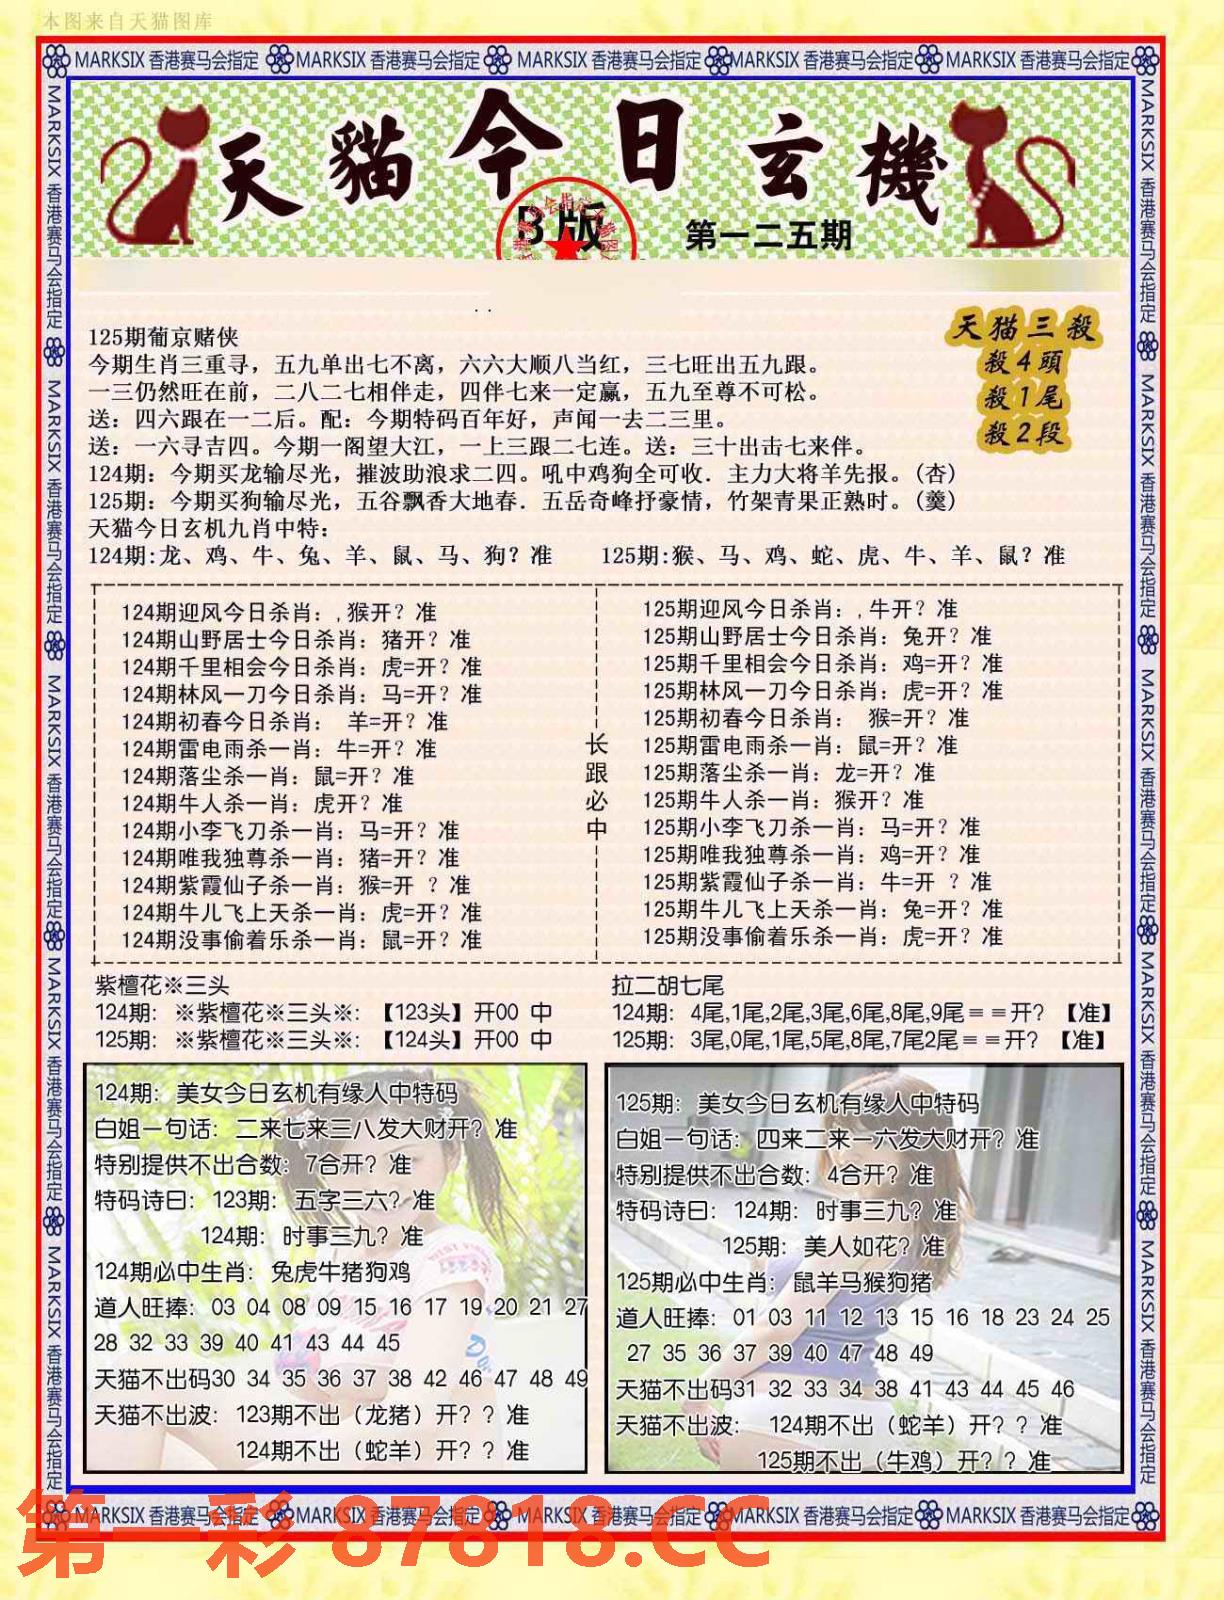 本图来自天猫图库
MARKSIX 香港赛马会指定 MARKSIX 香港赛马会指定 MARKSIX 香港赛马会指定 MARKSIX 香港赛马会指定 MARKSIX 香港赛马会指定
天貓今日玄機
B版
第一二五期
天猫三殺
殺4頭
殺1尾
殺2段
125期葡京赌侠
今期生肖三重寻，五九单出七不离，六六大顺八当红，三七旺出五九跟。
一三仍然旺在前，二八二七相伴走，四伴七来一定赢，五九至尊不可松。
送：四六跟在一二后。配：今期特码百年好，声闻一去二三里。
送：一六寻吉四。今期一阁望大江，一上三跟二七连。送：三十出击七来伴。
124期：今期买龙输尽光，摧波助浪求二四。吼中鸡狗全可收．主力大将羊先报。(杏)
125期：今期买狗输尽光，五谷飘香大地春．五岳奇峰抒豪情，竹架青果正熟时。(羹)
天猫今日玄机九肖中特：
124期:龙、鸡、牛、兔、羊、鼠、马、狗？准
125期:猴、马、鸡、蛇、虎、牛、羊、鼠？准
124期迎风今日杀肖：,猴开？准
124期山野居士今日杀肖：猪开？准
124期千里相会今日杀肖：虎=开？准
124期林风一刀今日杀肖：马=开？准
124期初春今日杀肖： 羊=开？准
124期雷电雨杀一肖：牛=开？准
124期落尘杀一肖：鼠=开？准
124期牛人杀一肖：虎开？准
124期小李飞刀杀一肖：马=开？准
124期唯我独尊杀一肖：猪=开？准
124期紫霞仙子杀一肖：猴=开 ？准
124期牛儿飞上天杀一肖：虎=开？准
124期没事偷着乐杀一肖：鼠=开？准
长跟必中
125期迎风今日杀肖：,牛开？准
125期山野居士今日杀肖：兔开？准
125期千里相会今日杀肖：鸡=开？准
125期林风一刀今日杀肖：虎=开？准
125期初春今日杀肖： 猴=开？准
125期雷电雨杀一肖：鼠=开？准
125期落尘杀一肖：龙=开？准
125期牛人杀一肖：猴开？准
125期小李飞刀杀一肖：马=开？准
125期唯我独尊杀一肖：鸡=开？准
125期紫霞仙子杀一肖：牛=开 ？准
125期牛儿飞上天杀一肖：兔=开？准
125期没事偷着乐杀一肖：虎=开？准
紫檀花※三头
124期：※紫檀花※三头※：【123头】开00 中
125期：※紫檀花※三头※：【124头】开00 中
拉二胡七尾
124期：4尾,1尾,2尾,3尾,6尾,8尾,9尾＝＝开？【准】
125期：3尾,0尾,1尾,5尾,8尾,7尾2尾＝＝开？【准】
124期：美女今日玄机有缘人中特码
白姐一句话：二来七来三八发大财开？准
特别提供不出合数：7合开？准
特码诗曰：123期：五字三六？准
124期：时事三九？准
124期必中生肖：兔虎牛猪狗鸡
道人旺捧：03 04 08 09 15 16 17 19 20 21 27
28 32 33 39 40 41 43 44 45
天猫不出码30 34 35 36 37 38 42 46 47 48 49
天猫不出波：123期不出（龙猪）开？？准
124期不出（蛇羊）开？？准
125期：美女今日玄机有缘人中特码
白姐一句话：四来二来一六发大财开？准
特别提供不出合数：4合开？准
特码诗曰：124期：时事三九？准
125期：美人如花？准
125期必中生肖：鼠羊马猴狗猪
道人旺捧：01 03 11 12 13 15 16 18 23 24 25
27 35 36 37 39 40 47 48 49
天猫不出码31 32 33 34 38 41 43 44 45 46
天猫不出波： 124期不出（蛇羊）开？？准
125期不出（牛鸡）开？？准
MARKSIX 香港赛马会指定 MARKSIX 香港赛马会指定 MARKSIX 香港赛马会指定 MARKSIX 香港赛马会指定 MARKSIX 香港赛马会指定
第一彩 87818.CC
MARKSIX 香港赛马会指定 MARKSIX 香港赛马会指定 MARKSIX 香港赛马会指定 MARKSIX 香港赛马会指定 MARKSIX 香港赛马会指定
MARKSIX 香港赛马会指定 MARKSIX 香港赛马会指定 MARKSIX 香港赛马会指定 MARKSIX 香港赛马会指定 MARKSIX 香港赛马会指定